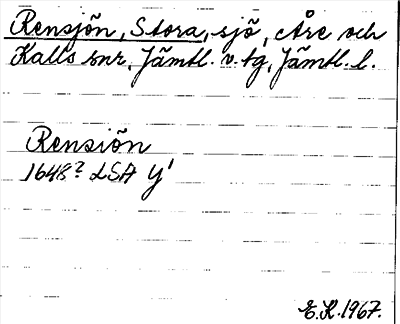 Rensjön, Stora, sjö, Åre och
Kalls snr, Jämtl. v. tg, Jämtl. l.
Rensiön
1648? LSA Y¹
E.K. 1967.